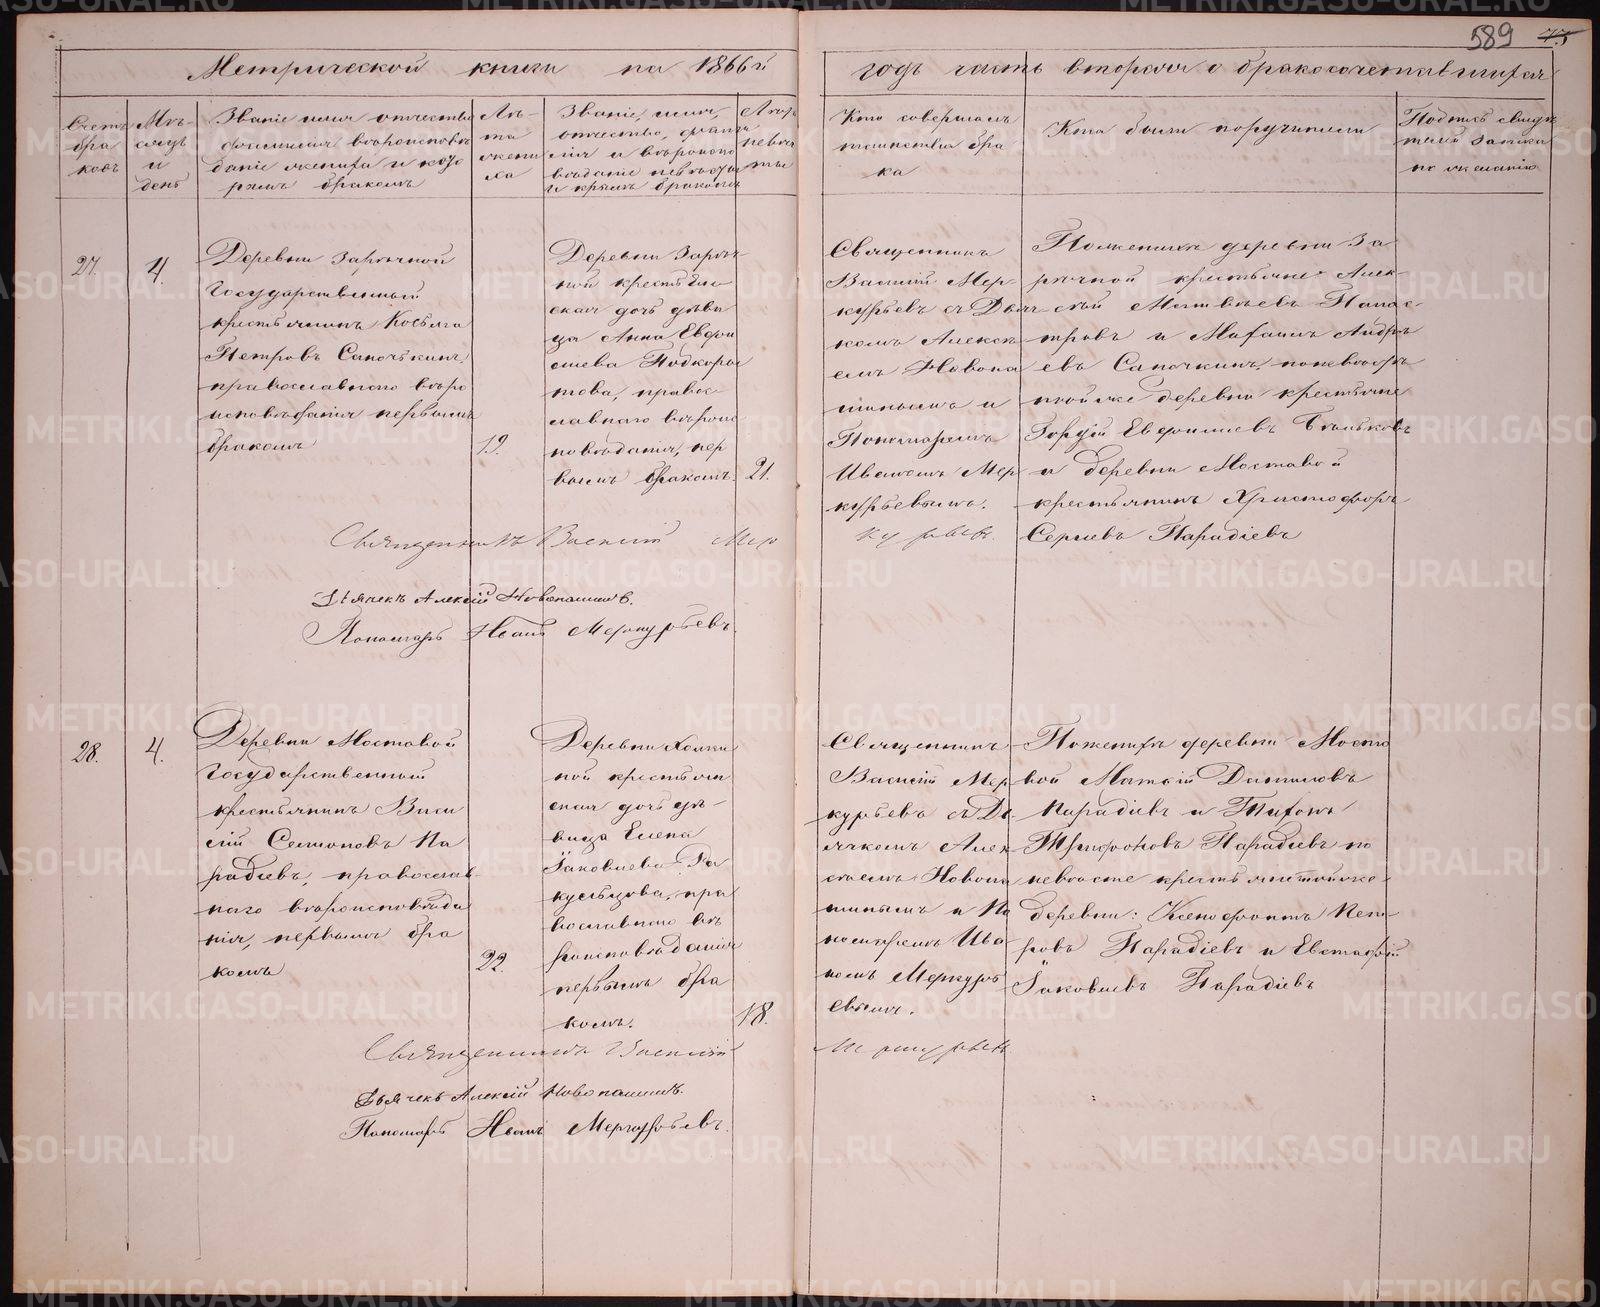 589
Метрической книги на 1866й годъ часть вторая о бракосочетавшихся
Счетъ
бра
ковъ
Мѣ-
сяцъ
и
день
Званіе имя отчество
фамилія вѣроисповѣ
даніе жениха и кото
рымъ бракомъ
Лѣ-
та
жени
ха
Званіе, имя,
отчество, фами
лія и вѣроиспо
вѣданіе невѣсты
и крымъ бракомъ
Лѣта
невѣс
ты
Кто совершалъ
таинства бра
ка
Кто были поручители
Подпись свидѣ
телей записи
по желанію
27.
4.
Деревни Зарѣчной
Государственный
крестьянинъ Косьма
Петровъ Сапочкинъ
православнаго вѣро
исповѣданія первымъ
бракомъ
19.
Деревни Зарѣч-
ной крестьян
ская дочь дѣви
ца Анна Евфи
міева Подкоры
това, правос
лавнаго вѣроис
повѣданія, пер
вымъ бракомъ.
21.
Священникъ
Василій Мер-
курьевъ съ Дьяч-
комъ Алексѣ
емъ Новопа
шинымъ и
Пономаремъ
Иваномъ Мер
курьевымъ.
По женихѣ деревни За
рѣчной крестьяне Алек-
сѣй Матвѣевъ
и Андрѣ
евъ Сапочкинъ, по невѣстѣ
той же деревни крестьяне
Гордій Евфиміевъ Бѣльковъ
и деревни Мостовой
крестьянинъ Христофоръ
Сергіевъ Парадіевъ
Священникъ Василій Меркурьевъ.
Дьячекъ Алексій Новопашинъ.
Пономарь Иванъ Меркурьевъ.
28.
4.
Деревни Мостовой
Государственный
крестьянинъ Васи
лій Семіоновъ Па
радіевъ, православ-
наго вѣроисповѣда
нія, первымъ бра
комъ
22.
Деревни
ной крестьян
ская дочь дѣ-
вица Елена
Іаковлева Ра
кульцева, пра
вославнаго вѣ
роисповѣданія
первымъ бра
комъ.
18.
Священникъ
Василій Мер
курьевъ съ Дь-
ячкомъ Алек
сѣемъ Новопа
шинымъ и По
номаремъ Ива
номъ Меркурь
евымъ.
По женихѣ деревни Мосто
вой Даниловъ
Парадіевъ и Тихонъ
Трифоновъ Парадіевъ по
невѣстѣ крестьяне той же
деревни: Ксенофонтъ Пет-
ровъ Парадіевъ и Евстафій
Іаковлевъ Парадіевъ
Священникъ Василій Меркурьевъ
Дьячекъ Алексій Новопашинъ.
Пономарь Иванъ Меркурьевъ.
METRIKI.GASO-URAL.RU